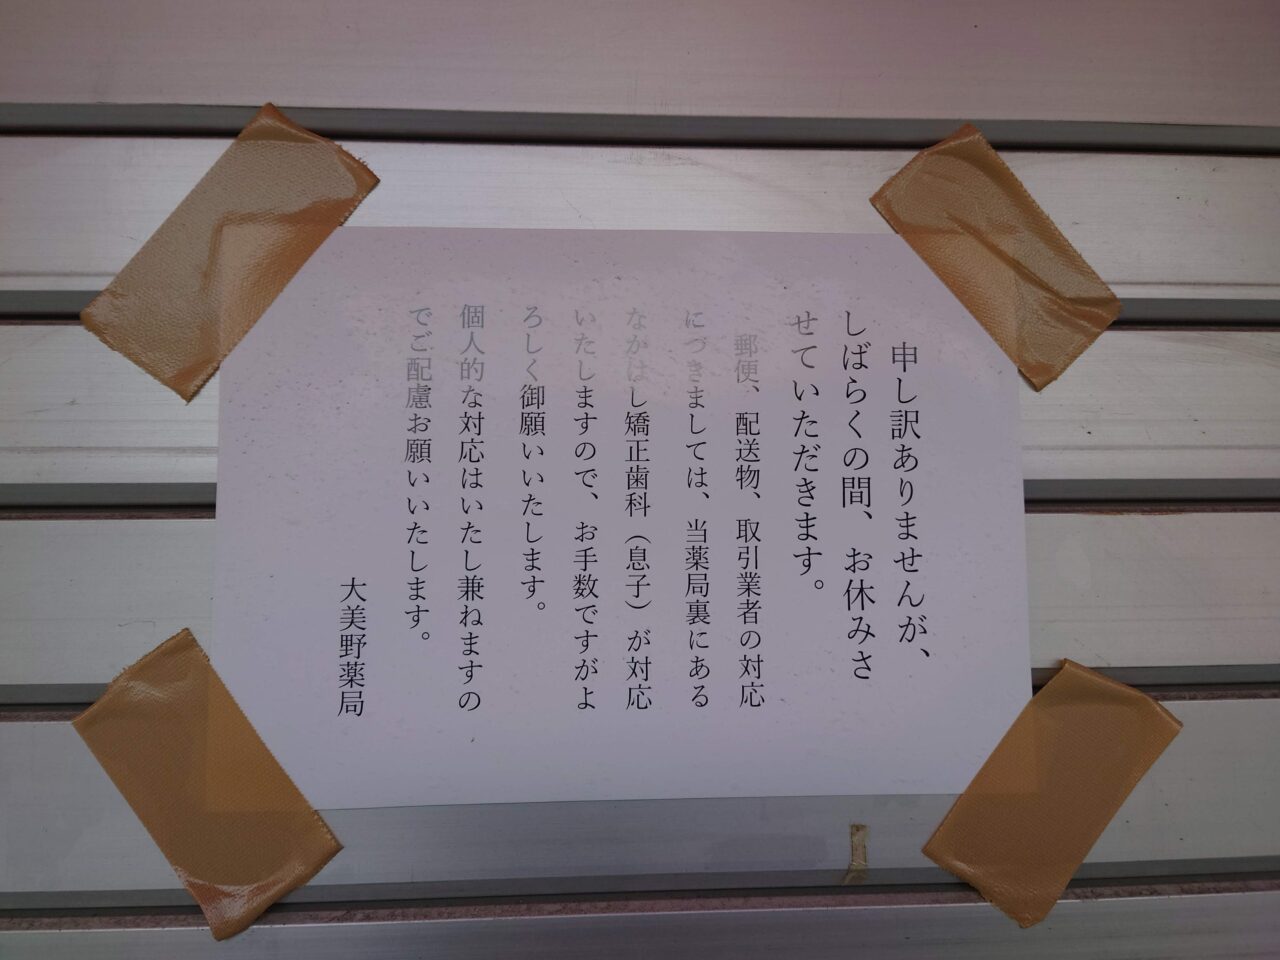 申し訳ありませんが、
しばらくの間、お休みさ
せていただきます。
郵便、配送物、取引業者の対応
につきましては、当薬局裏にある
なかはし矯正歯科（息子）が対応
いたしますので、お手数ですがよ
ろしく御願いいたします。
個人的な対応はいたし兼ねますの
でご配慮お願いいたします。
大美野薬局